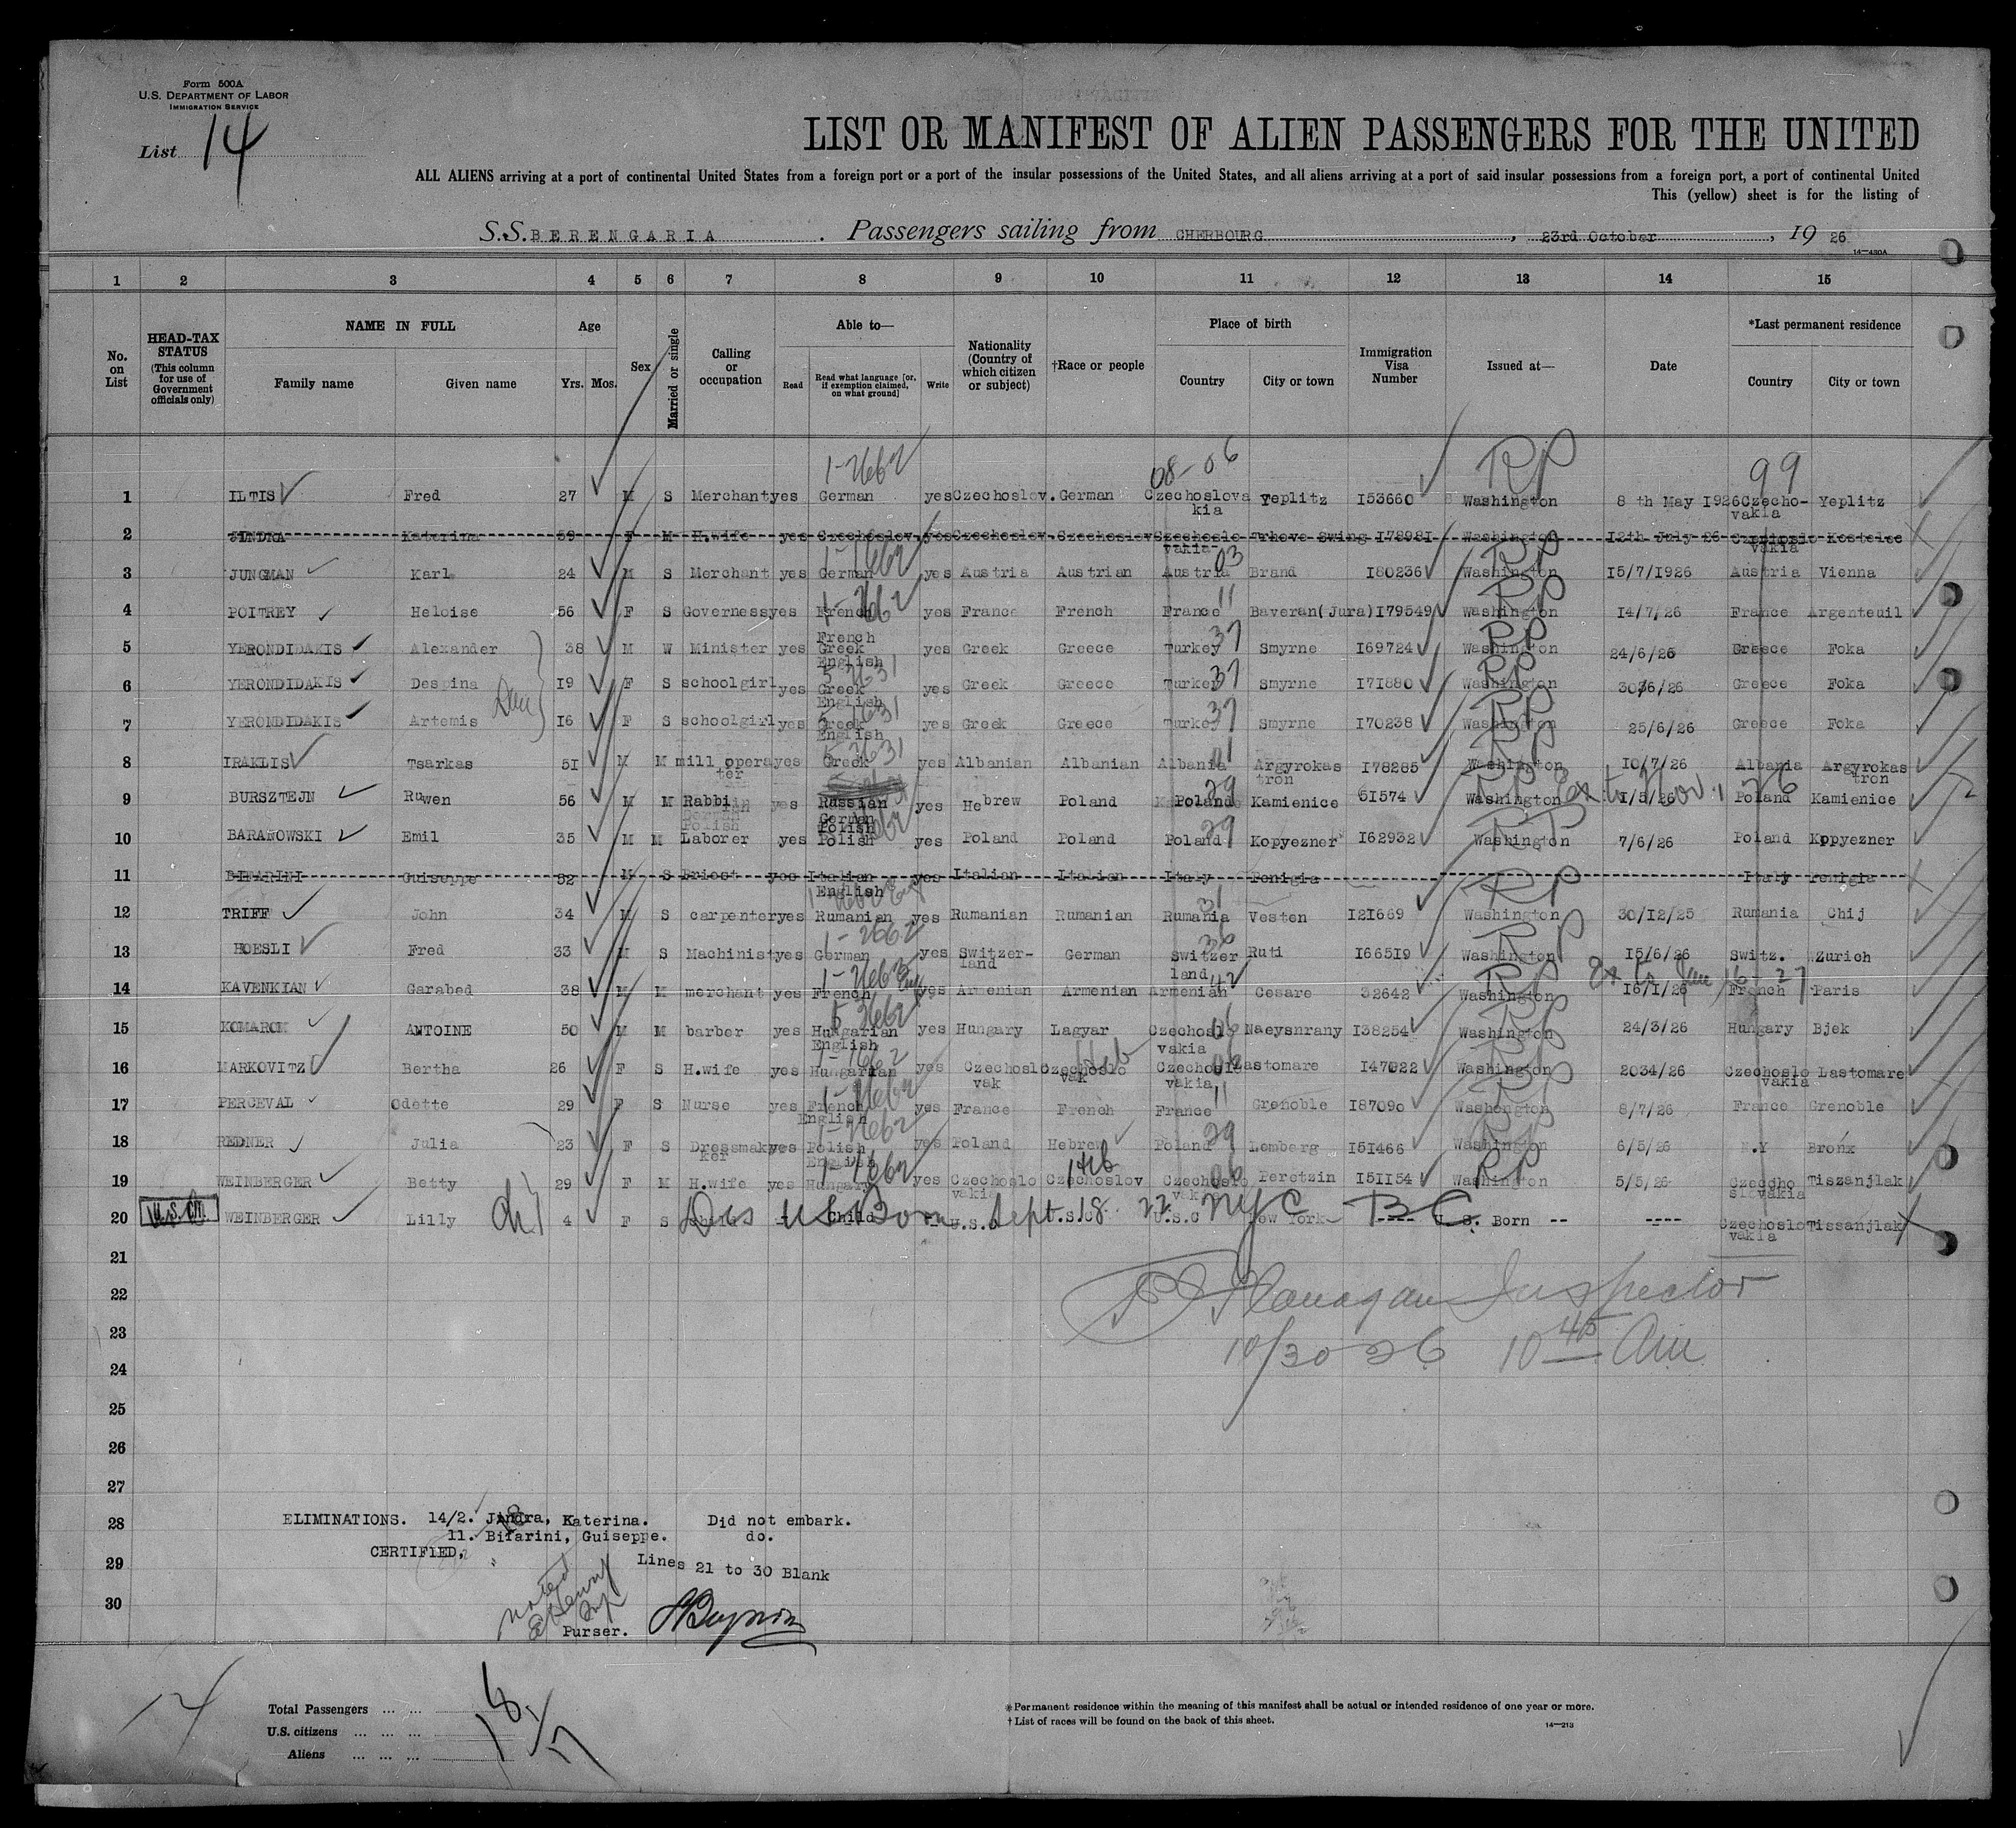 Form 500A
U.S. DEPARTMENT OF LABOR
IMMIGRATION SERVICE
List 14
LIST OR MANIFEST OF ALIEN PASSENGERS FOR THE UNITED
ALL ALIENS arriving at a port of continental United States from a foreign port or a port of the insular possessions of the United States, and all aliens arriving at a port of said insular possessions from a foreign port, a port of continental United
This (yellow) sheet is for the listing of
S.S. BERENGARIA . Passengers sailing from CHERBOURG , 23rd October , 19 26
14—430A
1 2 3 4 5 6 7 8 9 10 11 12 13 14 15
No. on List
HEAD-TAX STATUS (This column for use of Government officials only)
NAME IN FULL
Family name Given name
Age
Yrs. Mos.
Sex
Married or single
Calling or occupation
Able to—
Read
Read what language [or, if exemption claimed, on what ground]
Write
Nationality (Country of which citizen or subject)
†Race or people
Place of birth
Country City or town
Immigration Visa Number
Issued at—
Date
*Last permanent residence
Country City or town
1-2662 08-06 RP 99
1 ILTIS Fred 27 M S Merchant yes German yes Czechoslov. German Czechoslovakia Yeplitz I53660 Washington 8 th May I926 Czecho-vakia Yeplitz
2 JINDRA Katerina 59 F M H.wife yes Czechoslov. yes Czechoslov. Czechoslov Czechoslovakia Trhove Swing I78981 Washington I2th July 26 Czechoslovakia Kostelec
3 JUNGMAN Karl 24 M S Merchant yes German yes Austria Austrian Austria 03 Brand I80236 Washington RP I5/7/I926 Austria Vienna
4 POITREY Heloise 56 F S Governess yes French yes France French France 11 Baveran(Jura) I79549 Washington RP I4/7/26 France Argenteuil
5 YERONDIDAKIS Alexander 38 M W Minister yes French Greek English yes Greek Greece Turkey 37 Smyrne I69724 Washington RP 24/6/26 Greece Foka
6 YERONDIDAKIS Despina I9 F S schoolgirl yes Greek English yes Greek Greece Turkey 37 Smyrne I71880 Washington RP 30/6/26 Greece Foka
7 YERONDIDAKIS Artemis I6 F S schoolgirl yes Greek English yes Greek Greece Turkey 37 Smyrne I70238 Washington RP 25/6/26 Greece Foka
8 IRAKLIS Tsarkas 5I M M mill operater yes Greek yes Albanian Albanian Albania 01 Argyrokastron I78285 Washington RP I0/7/26 Albania Argyrokastron
9 BURSZTEJN Ruwen 56 M M Rabbi yes Russian German Polish yes Hebrew Poland Poland 29 Kamienice 61574 Washington RP Ex to Nov. 1 26 I/5/26 Poland Kamienice
10 BARANOWSKI Emil 35 M M Laborer yes Polish yes Poland Poland Poland 29 Kopyezner I62932 Washington RP 7/6/26 Poland Kopyezner
11 BIFARINI Guiseppe 52 M S Priest yes Italian English yes Italian Italian Italy Penigia Italy Penigia
12 TRIFF John 34 M S carpenter yes Rumanian yes Rumanian Rumanian Rumania 31 Vesten I21669 Washington RP 30/I2/25 Rumania Chij
13 HOESLI Fred 33 M S Machinist yes German yes Switzer-land German Switzerland 36 Ruti I66519 Washington RP I5/6/26 Switz. Zurich
14 KAVENKIAN Garabed 38 M M merchant yes French yes Armenian Armenian Armenian 42 Cesare 32642 Washington RP I6/I/26 French Paris
15 KOMAROM ANTOINE 50 M M barber yes Hungarian English yes Hungary Lagyar Czechoslovakia 06 Naeysnrany I38254 Washington RP 24/3/26 Hungary Bjek
16 MARKOVITZ Bertha 26 F S H.wife yes Hungarian yes Czechoslovak Czechoslovak Heb Czechoslovakia 06 Lastomare I47022 Washington RP 2034/26 Czechoslovakia Lastomare
17 PERCEVAL Odette 29 F S Nurse yes French English yes France French France 11 Grenoble I87090 Washington RP 8/7/26 France Grenoble
18 REDNER Julia 23 F S Dressmakker yes Polish English yes Poland Hebrew Poland 29 Lemberg I5I466 Washington RP 6/5/26 N.Y Bronx
19 WEINBERGER Betty 29 F M H.wife yes Hungary yes Czechoslovakia Czechoslov Heb Czechoslovak 06 Peretzin I5II54 Washington RP 5/5/26 Czechoslovakia Tiszanjlak
20 U.S. Cit. WEINBERGER Lilly 4 F S Child U.S.C U.S.C New York ---- U.S. Born -- ---- Czechoslovakia Tissanjlak
US Born Sept. 18 22 NYC BC
21
22 Flanagan Inspector
23 10/30 26 10 45 Am
24
25
26
27
28 ELIMINATIONS. 14/2. Jindra, Katerina. Did not embark.
11. Bifarini, Guiseppe. do.
CERTIFIED,
29 Lines 21 to 30 Blank
noted
30
Purser.
Total Passengers ... ... 18
U.S. citizens ... ... ... 1
Aliens ... ... ... 17
*Permanent residence within the meaning of this manifest shall be actual or intended residence of one year or more.
†List of races will be found on the back of this sheet.
14—213